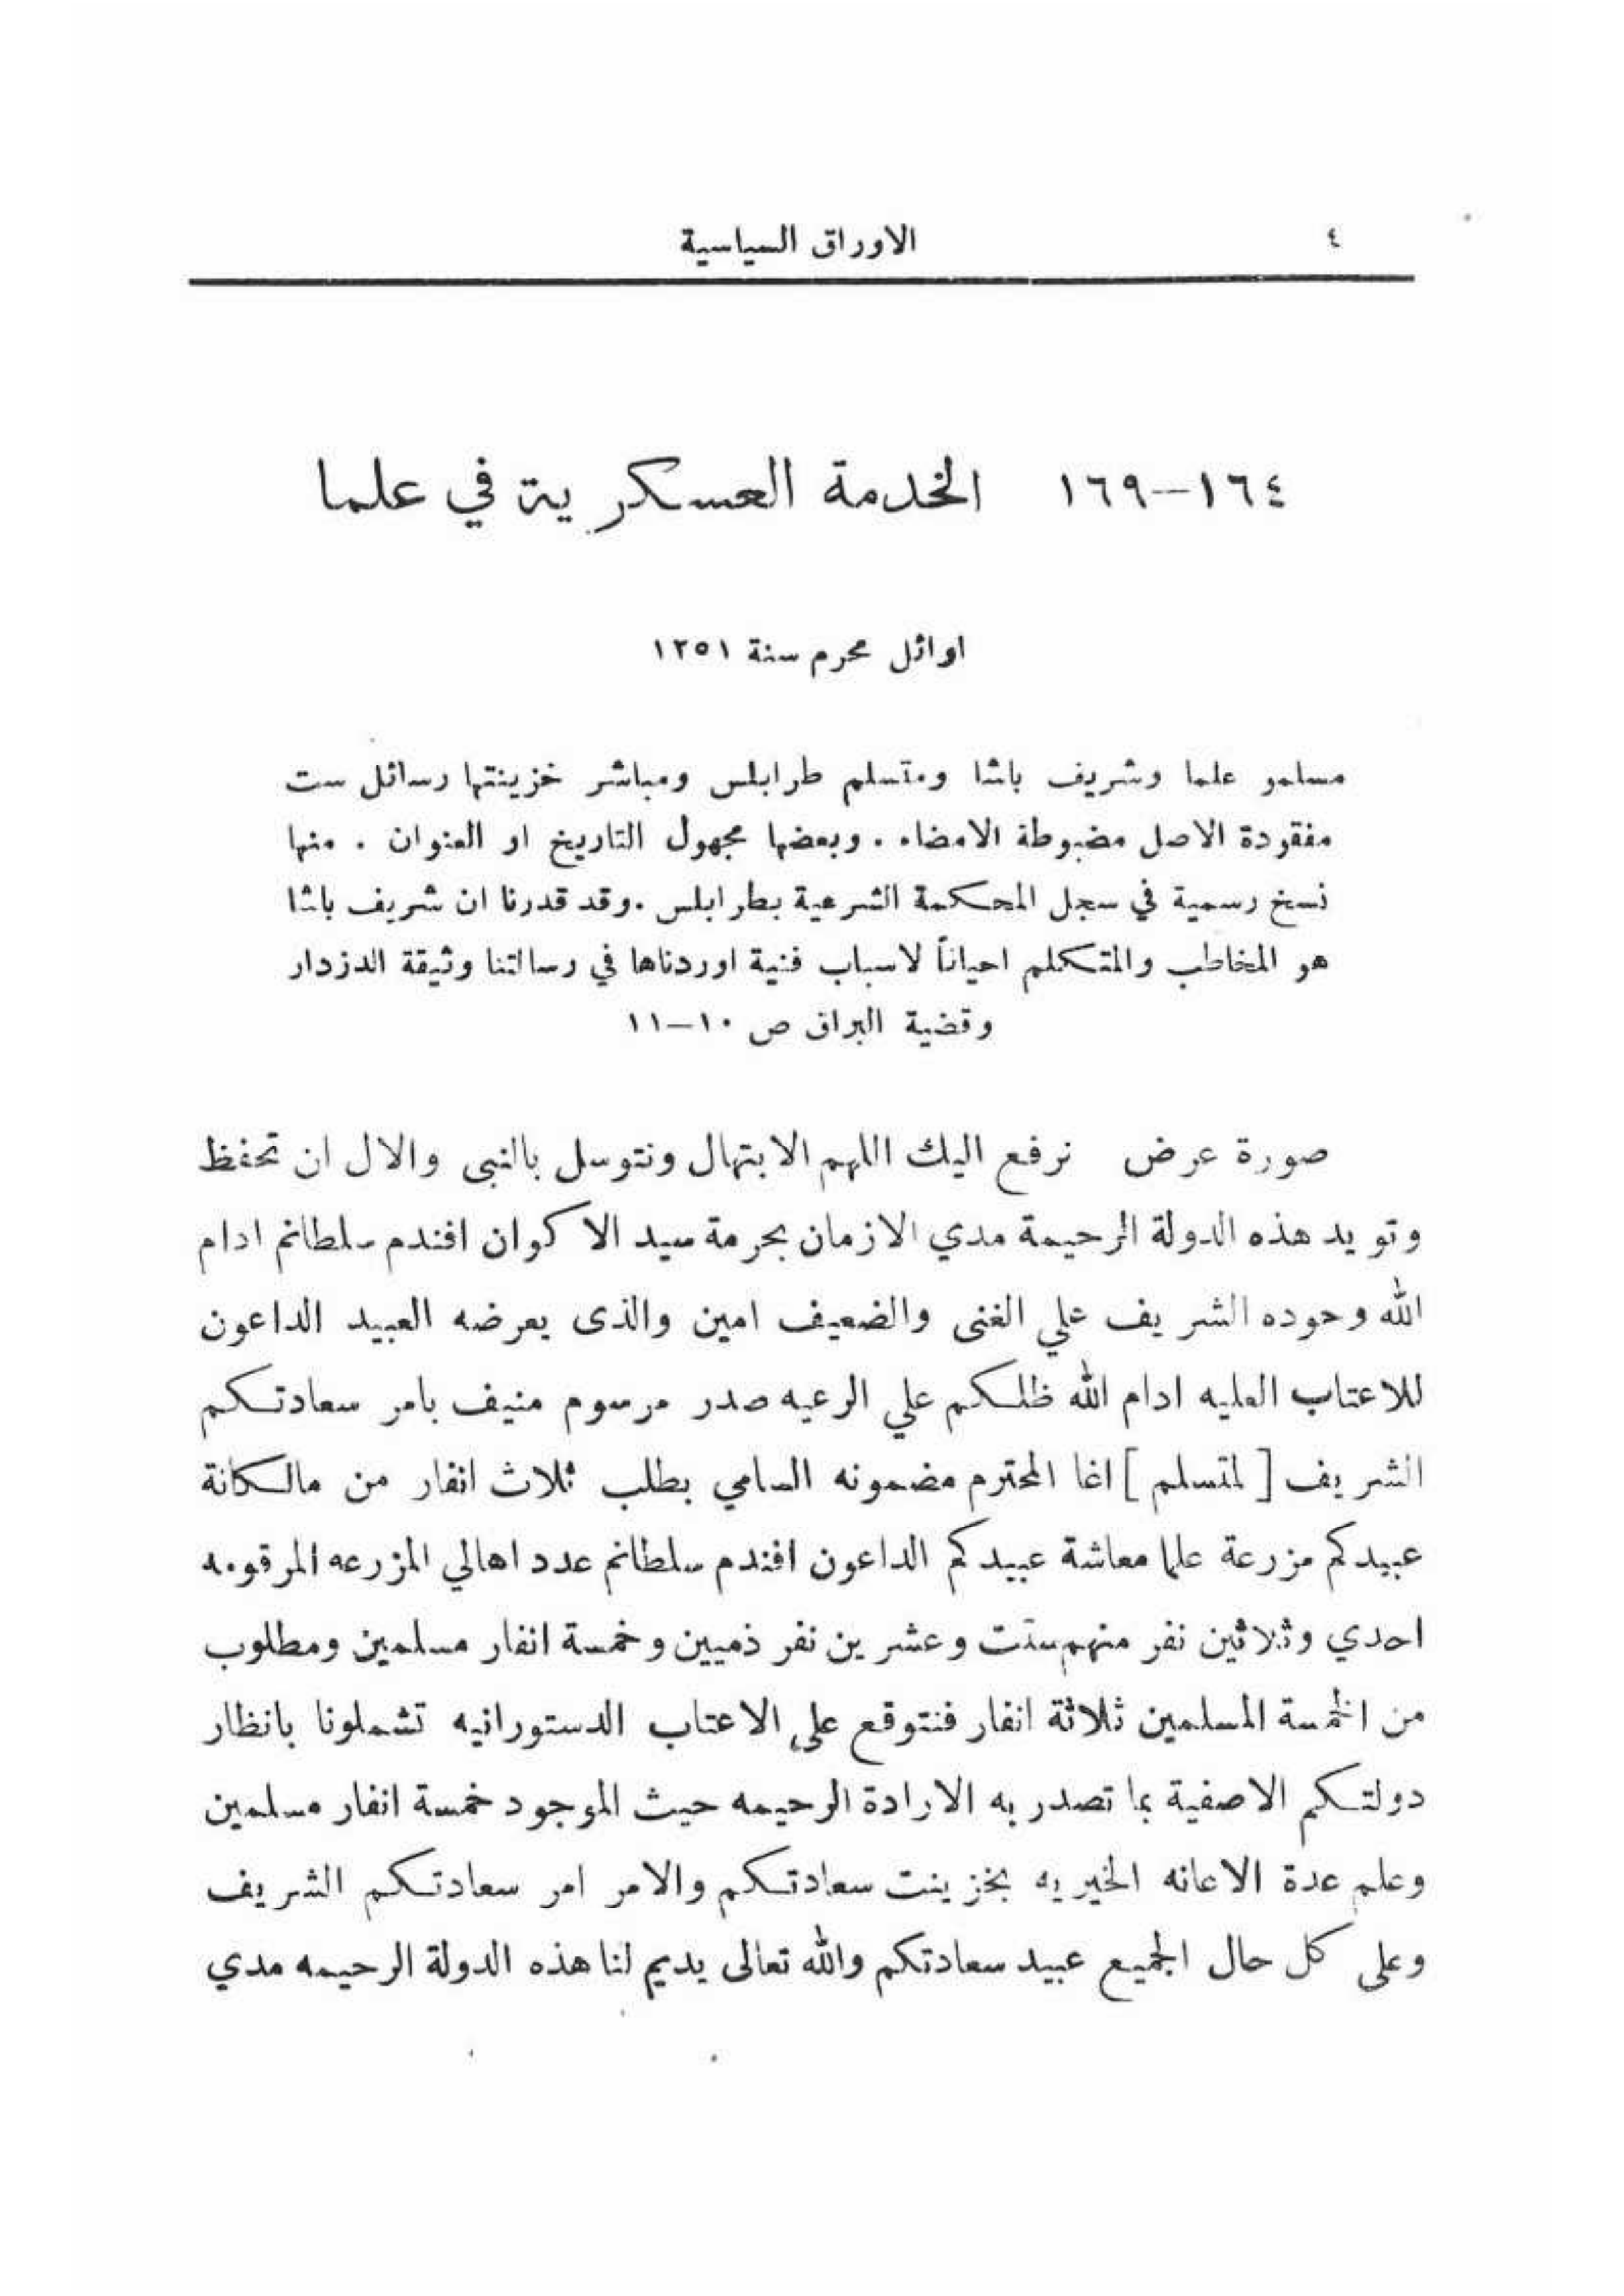 ٤
الاوراق السياسية
١٦٤–١٦٩ الخدمة العسكرية في علما
اوائل محرم سنة ١٢٥١
مسلمو علما وشريف باشا ومتسلم طرابلس ومباشر خزينتها رسائل ست
مفقودة الاصل مضبوطة الامضاء . وبعضها مجهول التاريخ او العنوان . منها
نسخ رسمية في سجل المحكمة الشرعية بطرابلس . وقد قدرنا ان شريف باشا
هو المخاطب والمتكلم احياناً لاسباب فنية اوردناها في رسالتنا وثيقة الدزدار
وقضية البراق ص ١٠–١١
صورة عرض نرفع اليك اللهم الابتهال ونتوسل بالنبى والال ان تحفظ
وتويد هذه الدولة الرحيمة مدي الازمان بحرمة سيد الاكوان افندم سلطانم ادام
الله وحوده الشريف علي الغنى والضعيف امين والذى يعرضه العبيد الداعون
للاعتاب العليه ادام الله ظلكم علي الرعيه صدر مرسوم منيف بامر سعادتكم
الشريف [ لمتسلم ] اغا المحترم مضمونه السامي بطلب ثلاث انفار من مالكانة
عبيدكم مزرعة علما معاشة عبيدكم الداعون افندم سلطانم عدد اهالي المزرعه المرقومه
احدي وثلاثين نفر منهم ستت وعشرين نفر ذميين وخمسة انفار مسلمين ومطلوب
من الخمسة المسلمين ثلاثة انفار فنتوقع على الاعتاب الدستورانيه تشملونا بانظار
دولتكم الاصفية بما تصدر به الارادة الرحيمه حيث الموجود خمسة انفار مسلمين
وعلم عدة الاعانه الخيريه بخزينت سعادتكم والامر امر سعادتكم الشريف
وعلى كل حال الجميع عبيد سعادتكم والله تعالى يديم لنا هذه الدولة الرحيمه مدي